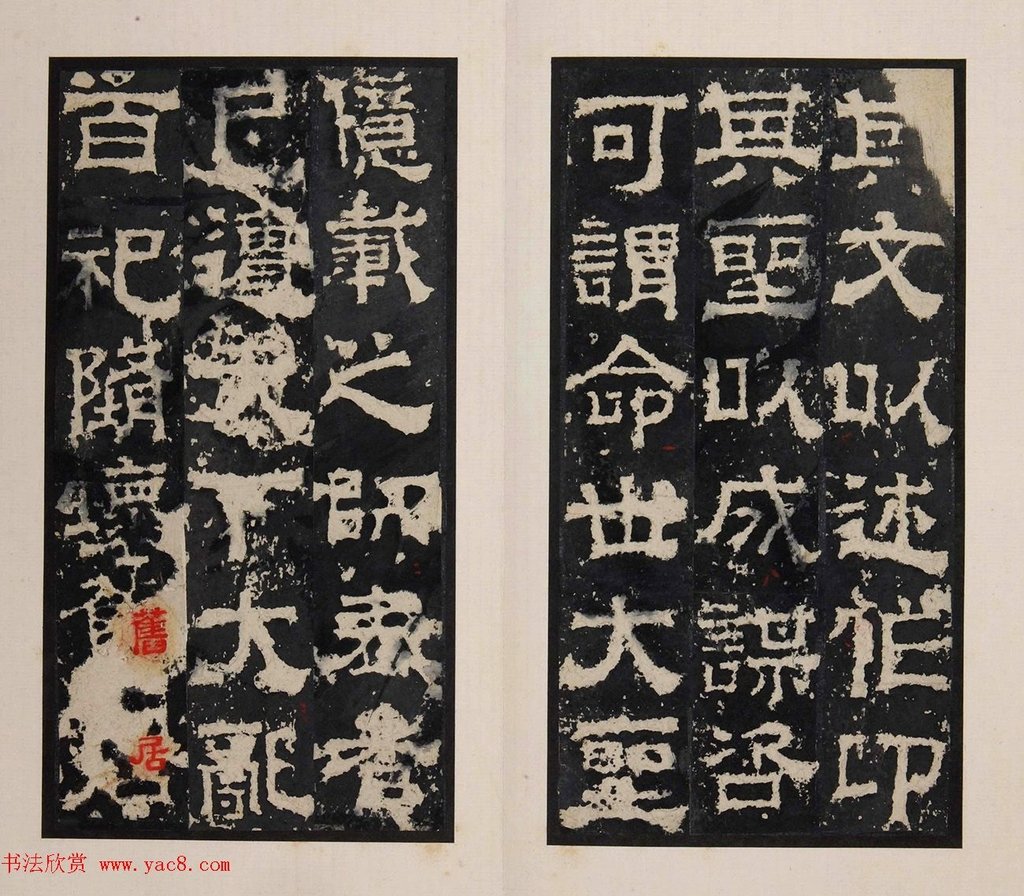 其文以述作卬
其聖以成謀咨
可謂命世大聖
億載之師表者
已遭天下大亂
百祀壞舊居
舊居
书法欣赏 www.yac8.com